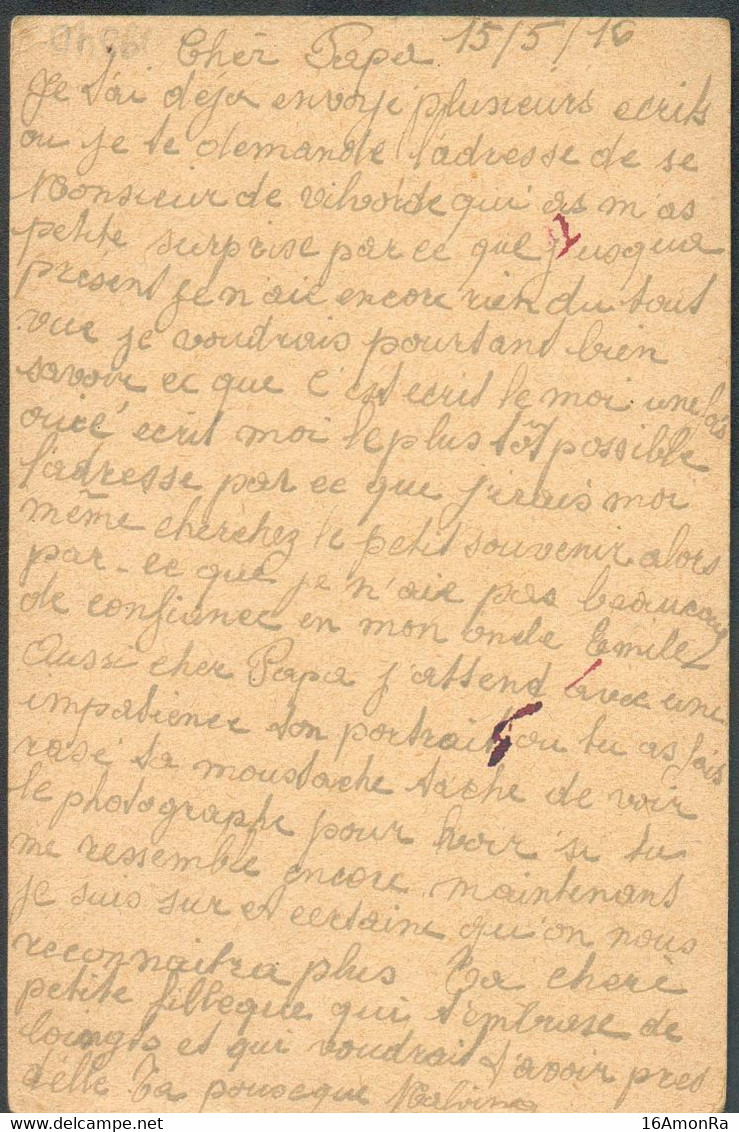 Cher Papa 15/5/16
Je t'ai déja envoyé plusieurs ecrits
ou je te demande l'adresse de se
Monsieur de vilvorde qui as m'as
petite surprise par ce que jusqua
présent je n'aie encore rien du tout
vue je voudrais pourtant bien
savoir ce que c'est ecrit le moi une fois
ecrit moi le plus tôt possible
l'adresse par ce que j'irais moi
même cherchez le petit souvenir alors
par-ce que je n'aie pas beaucoup
de confience en mon oncle Emile
Aussi cher Papa j'attend avec une
impatience ton portrait ou tu as fais
rasé ta moustache tache de voir
le photographe pour voir si tu
me ressemble encore maintenant
je suis sur et certaine qu'on nous
reconnaitra plus Ta cherè
petite filleque qui t'embrase de
loingts et qui voudrait t'avoir pres
d'elle Ta pouseque Malvina
16AmonRa